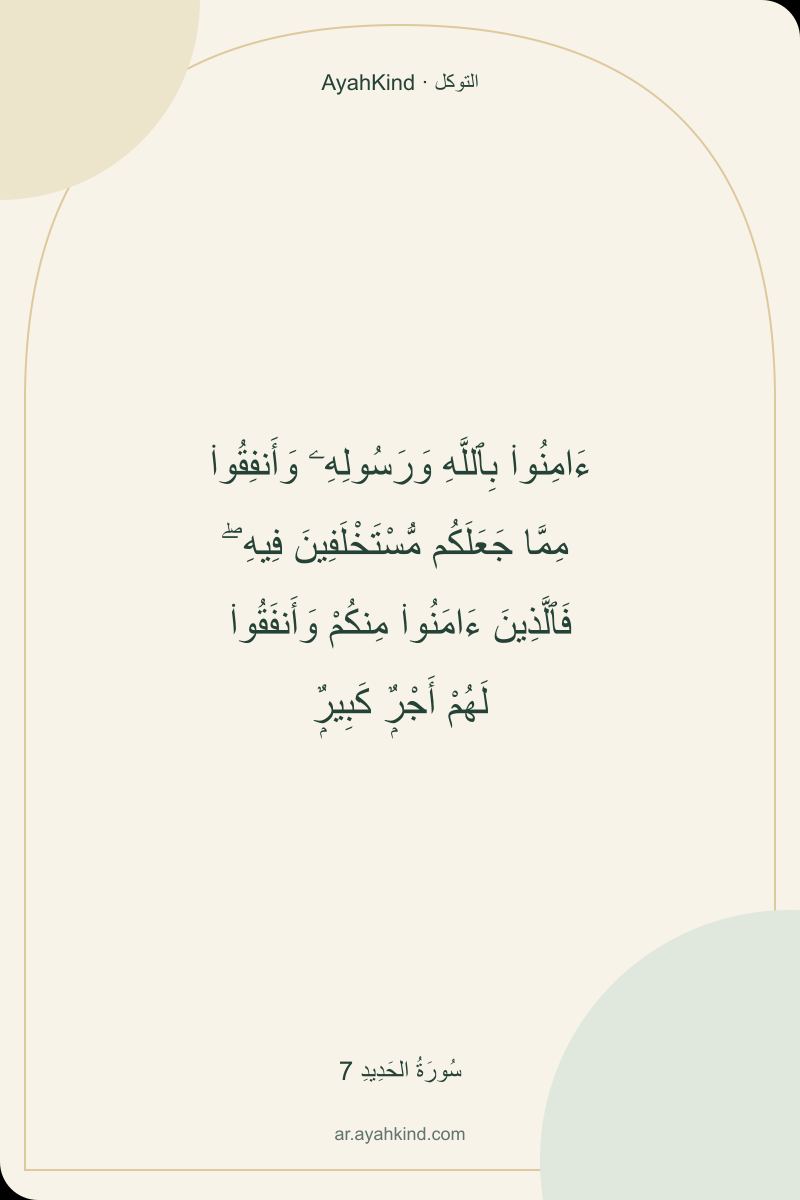 AyahKind · التوكل
ءَامِنُوا۟ بِٱللَّهِ وَرَسُولِهِۦ وَأَنفِقُوا۟
مِمَّا جَعَلَكُم مُّسْتَخْلَفِينَ فِيهِ ۖ
فَٱلَّذِينَ ءَامَنُوا۟ مِنكُمْ وَأَنفَقُوا۟
لَهُمْ أَجْرٌۭ كَبِيرٌۭ
سُورَةُ الحَدِيدِ 7
ar.ayahkind.com